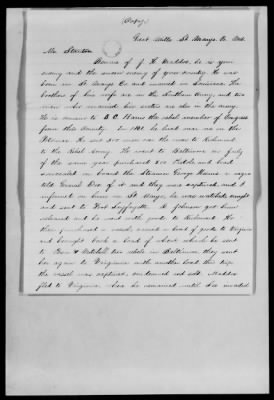 (Copy)
Great Mills St Marys Co Md.
Mr. Stanton
Beware of J. H. Maddox, he is your
enemy and the sworn enemy of your country. He was
born in St Marys Co and married in Louisiana. The
brothers of his wife are in the Southern Army, and two
men who married his sisters are also in the army.
He is cousin to B. C. Harris the rebel member of Congress
from this County. In 1861 he beat near me on the
Potomac. He and two men ran the way to Richmond
to the Rebel Army. He went to Baltimore in July
of the same year purchased 200 Pistols and had
concealed on board the Steamer George Weems a negro
told Genral Dix of it and they were captured, and I
informed on him in St. Marys, he was watched, caught
and sent to Fort Lafayette. R Johnson got him
released and he went with goods to Richmond. He
then purchased a vessel, carried a load of goods to Virginia
and brought back a load of wheat which he sent
to Penn & Mitchell two rebels in Baltimore, they sent
her again to Virginia with another load, this trip
the vessel was captured, condemned and sold. Maddox
fled to Virginia, where he remained until Lee invaded